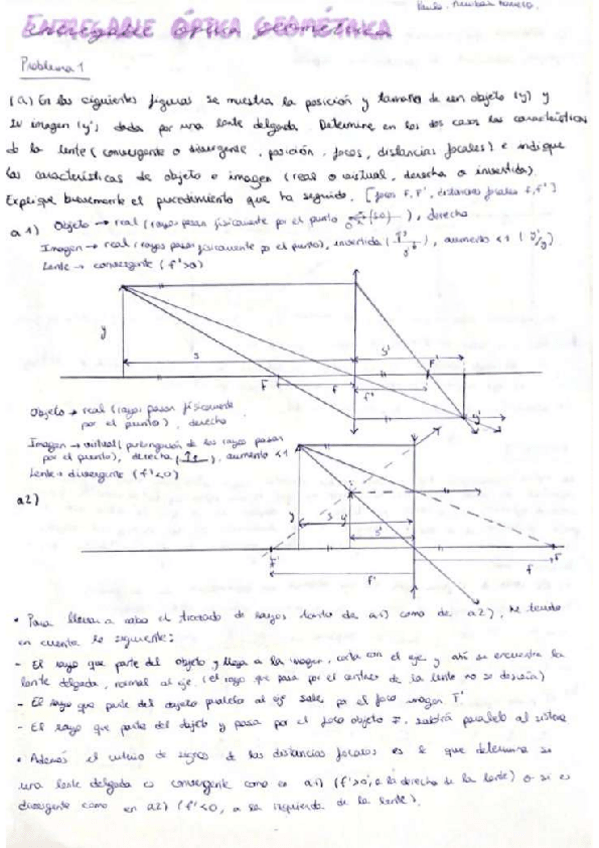 ENTREGABLE ÓPTICA GEOMÉTRICA
Problema 1
(a) En las siguientes figuras se muestra la posición y tamaño de un objeto (y) y
su imagen (y') dada por una lente delgada. Determine en los dos casos las características
de la lente (convergente o divergente, posición, focos, distancias focales) e indique
las características de objeto e imagen (real o virtual, derecha o invertida).
Explique brevemente el procedimiento que ha seguido. [focos F, F', distancias focales f, f']
a1) Objeto → real (rayos pasan físicamente por el punto), derecho
Imagen → real (rayos pasan físicamente por el punto), invertida, aumento <1 (y'/y)
Lente → convergente (f'>0)
y
s
s'
F'
F
f
f'
y'
Objeto → real (rayos pasan físicamente
por el punto), derecho
Imagen → virtual (prolongación de los rayos pasan
por el punto), derecha, aumento <1
Lente → divergente (f'<0)
a2)
y
s
y'
s'
F'
F
f
f'
• Para llevar a cabo el trazado de rayos tanto de a1) como de a2), he tenido
en cuenta lo siguiente:
- El rayo que parte del objeto y llega a la imagen, corta con el eje y ahí se encuentra la
lente delgada, normal al eje. (el rayo que pasa por el centro de la lente no se desvía)
- El rayo que parte del objeto paralelo al eje sale por el foco imagen F'
- El rayo que parte del objeto y pasa por el foco objeto F, saldrá paralelo al sistema
• Además el criterio de signos de las distancias focales es lo que determina si
una lente delgada es convergente como en a1) (f'>0, a la derecha de la lente) o si es
divergente como en a2) (f'<0, a la izquierda de la lente).